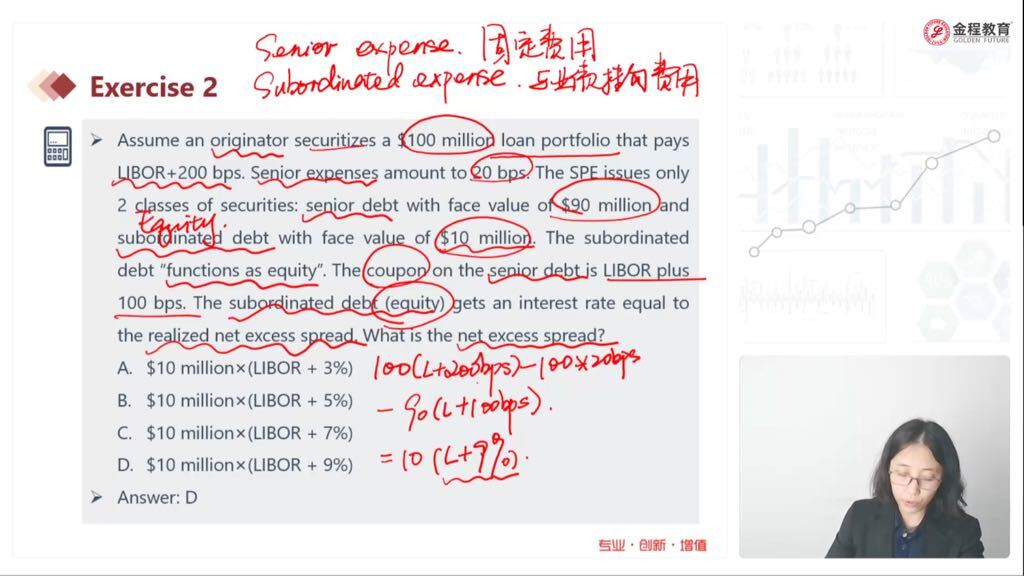 Senior expense. 固定费用
Subordinated expense. 与业绩挂钩费用
金程教育
GOLDEN FUTURE
Exercise 2
Assume an originator securitizes a $100 million loan portfolio that pays
LIBOR+200 bps. Senior expenses amount to 20 bps. The SPE issues only
2 classes of securities: senior debt with face value of $90 million and
Equity.
subordinated debt with face value of $10 million. The subordinated
debt “functions as equity”. The coupon on the senior debt is LIBOR plus
100 bps. The subordinated debt (equity) gets an interest rate equal to
the realized net excess spread. What is the net excess spread?
A. $10 million×(LIBOR + 3%)
B. $10 million×(LIBOR + 5%)
C. $10 million×(LIBOR + 7%)
D. $10 million×(LIBOR + 9%)
100(L+200bps)-100×20bps
- 90(L+100bps).
= 10 (L+9%).
Answer: D
专业·创新·增值